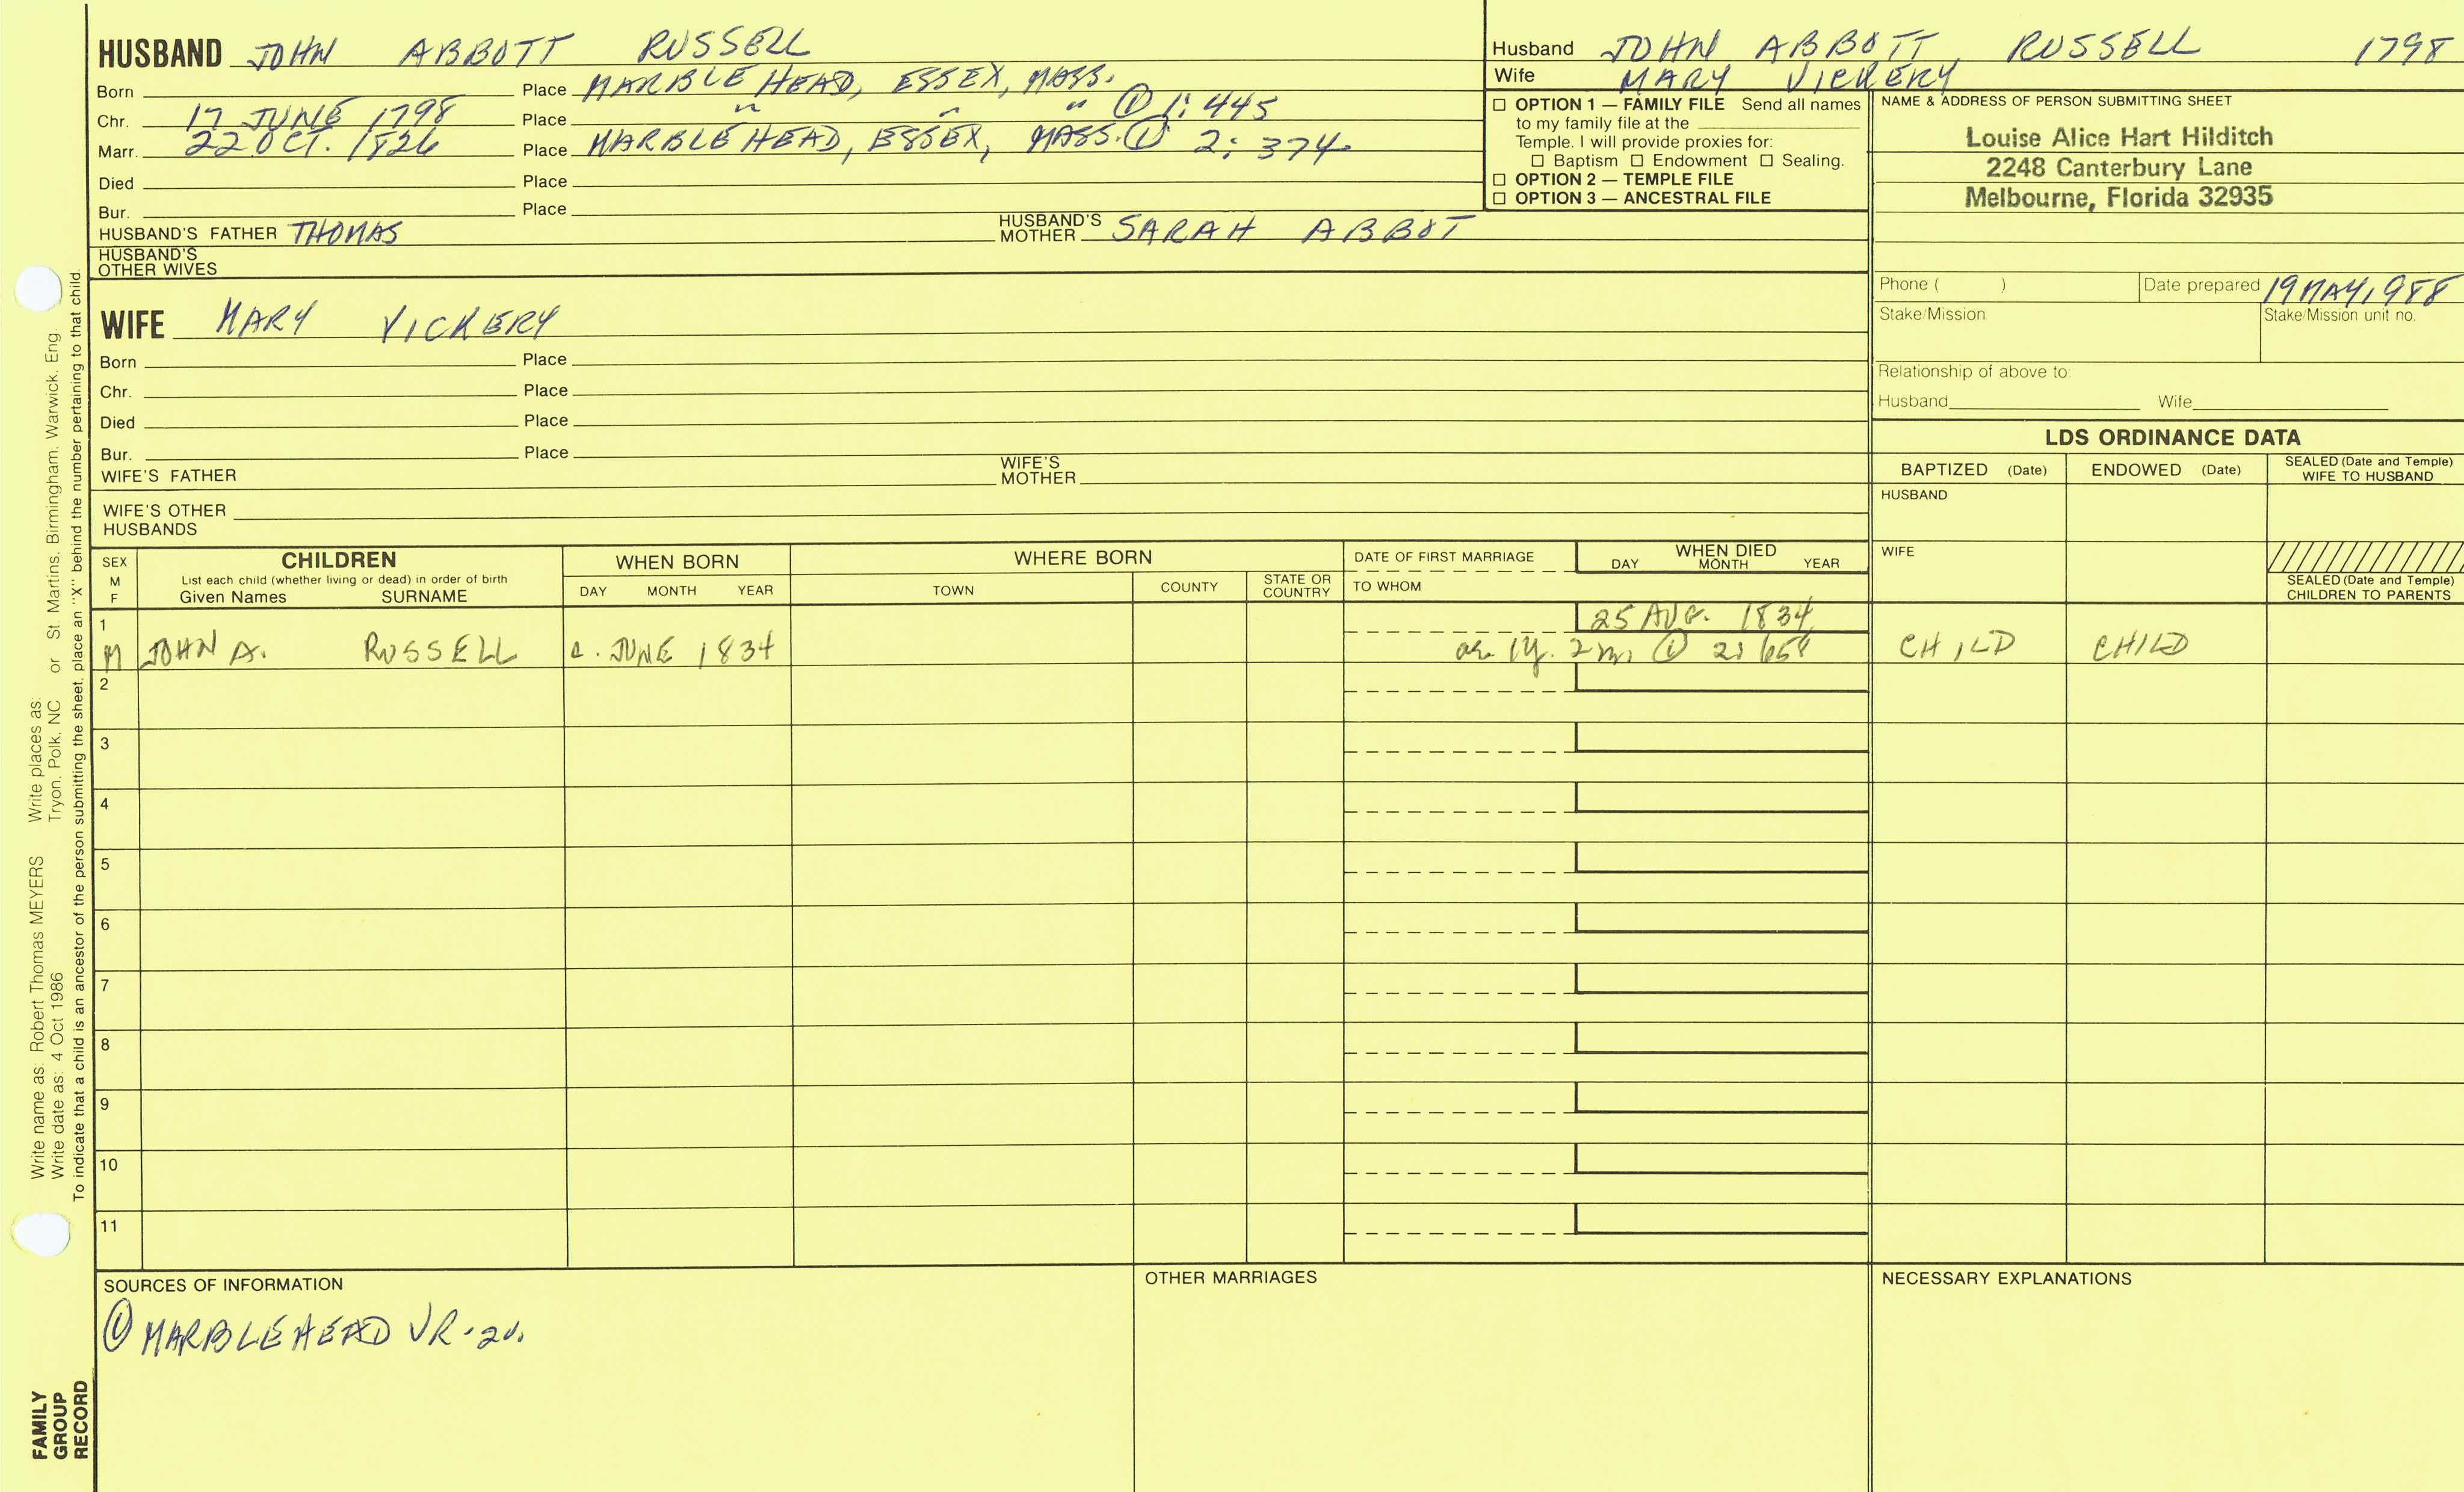 HUSBAND JOHN ABBOTT RUSSELL
Born Place MARBLEHEAD, ESSEX, MASS.
Chr. 17 JUNE 1798 Place " " " ① 1: 445
Marr. 22 OCT. 1826 Place MARBLEHEAD, ESSEX, MASS. ① 2: 374
Died Place
Bur. Place
HUSBAND'S FATHER THOMAS HUSBAND'S MOTHER SARAH ABBOT
HUSBAND'S OTHER WIVES
Husband JOHN ABBOTT RUSSELL 1798
Wife MARY VICKERY
☐ OPTION 1 — FAMILY FILE Send all names
to my family file at the
Temple. I will provide proxies for:
☐ Baptism ☐ Endowment ☐ Sealing.
☐ OPTION 2 — TEMPLE FILE
☐ OPTION 3 — ANCESTRAL FILE
NAME & ADDRESS OF PERSON SUBMITTING SHEET
Louise Alice Hart Hilditch
2248 Canterbury Lane
Melbourne, Florida 32935
Phone ( ) Date prepared 19 MAY 1988
Stake/Mission Stake/Mission unit no.
Relationship of above to:
Husband Wife
WIFE MARY VICKERY
Born Place
Chr. Place
Died Place
Bur. Place
WIFE'S FATHER WIFE'S MOTHER
WIFE'S OTHER
HUSBANDS
LDS ORDINANCE DATA
BAPTIZED (Date) ENDOWED (Date) SEALED (Date and Temple) WIFE TO HUSBAND
HUSBAND
WIFE
SEALED (Date and Temple)
CHILDREN TO PARENTS
SEX M F CHILDREN WHEN BORN WHERE BORN DATE OF FIRST MARRIAGE WHEN DIED
List each child (whether living or dead) in order of birth
Given Names SURNAME DAY MONTH YEAR TOWN COUNTY STATE OR COUNTRY TO WHOM DAY MONTH YEAR
1 25 AUG. 1834
M JOHN A. RUSSELL c. JUNE 1834 ae. 1y. 2m. ① 2: 658 CHILD CHILD
2
3
4
5
6
7
8
9
10
11
SOURCES OF INFORMATION
① MARBLEHEAD VR - 2v.
OTHER MARRIAGES
NECESSARY EXPLANATIONS
Write name as: Robert Thomas MEYERS Write places as:
Write date as: 4 Oct 1986 Tryon, Polk, NC or St. Martins, Birmingham, Warwick, Eng.
To indicate that a child is an ancestor of the person submitting the sheet, place an "X" behind the number pertaining to that child.
FAMILY
GROUP
RECORD